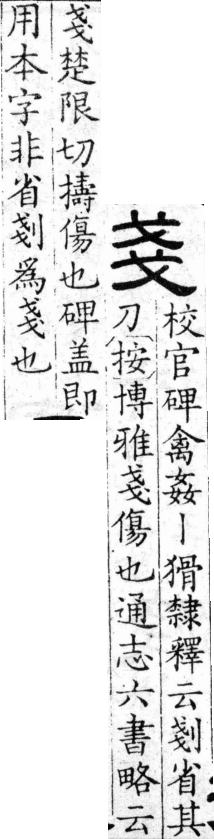 戔
校官碑禽姦丨猾隸釋云剗省其
刀按博雅戔傷也通志六書略云
戔楚限切擣傷也碑盖即
用本字非省剗爲戔也